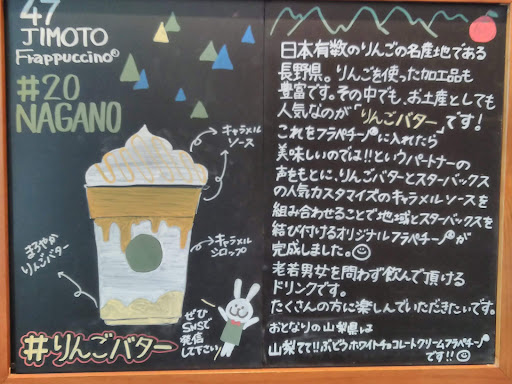 47
JIMOTO
Frappuccino®
#20
NAGANO
キャラメル
ソース
キャラメル
シロップ
まろやか
りんごバター
ぜひ
SNSで
発信
して下さい
#りんごバター
日本有数のりんごの名産地である
長野県。りんごを使った加工品も
豊富です。その中でも、お土産としても
人気なのが「りんごバター」です!
これをフラペチーノ®に入れたら
美味しいのでは!!というパートナーの
声をもとに、りんごバターとスターバックス
の人気カスタマイズのキャラメルソースを
組み合わせることで地域とスターバックスを
結び付けるオリジナルフラペチーノ®が
完成しました。
老若男女を問わず飲んで頂ける
ドリンクです。
たくさんの方に楽しんでいただきたいです。
おとなりの山梨県は
山梨てて!!ぶどうホワイトチョコレートクリームフラペチーノ®
です!!